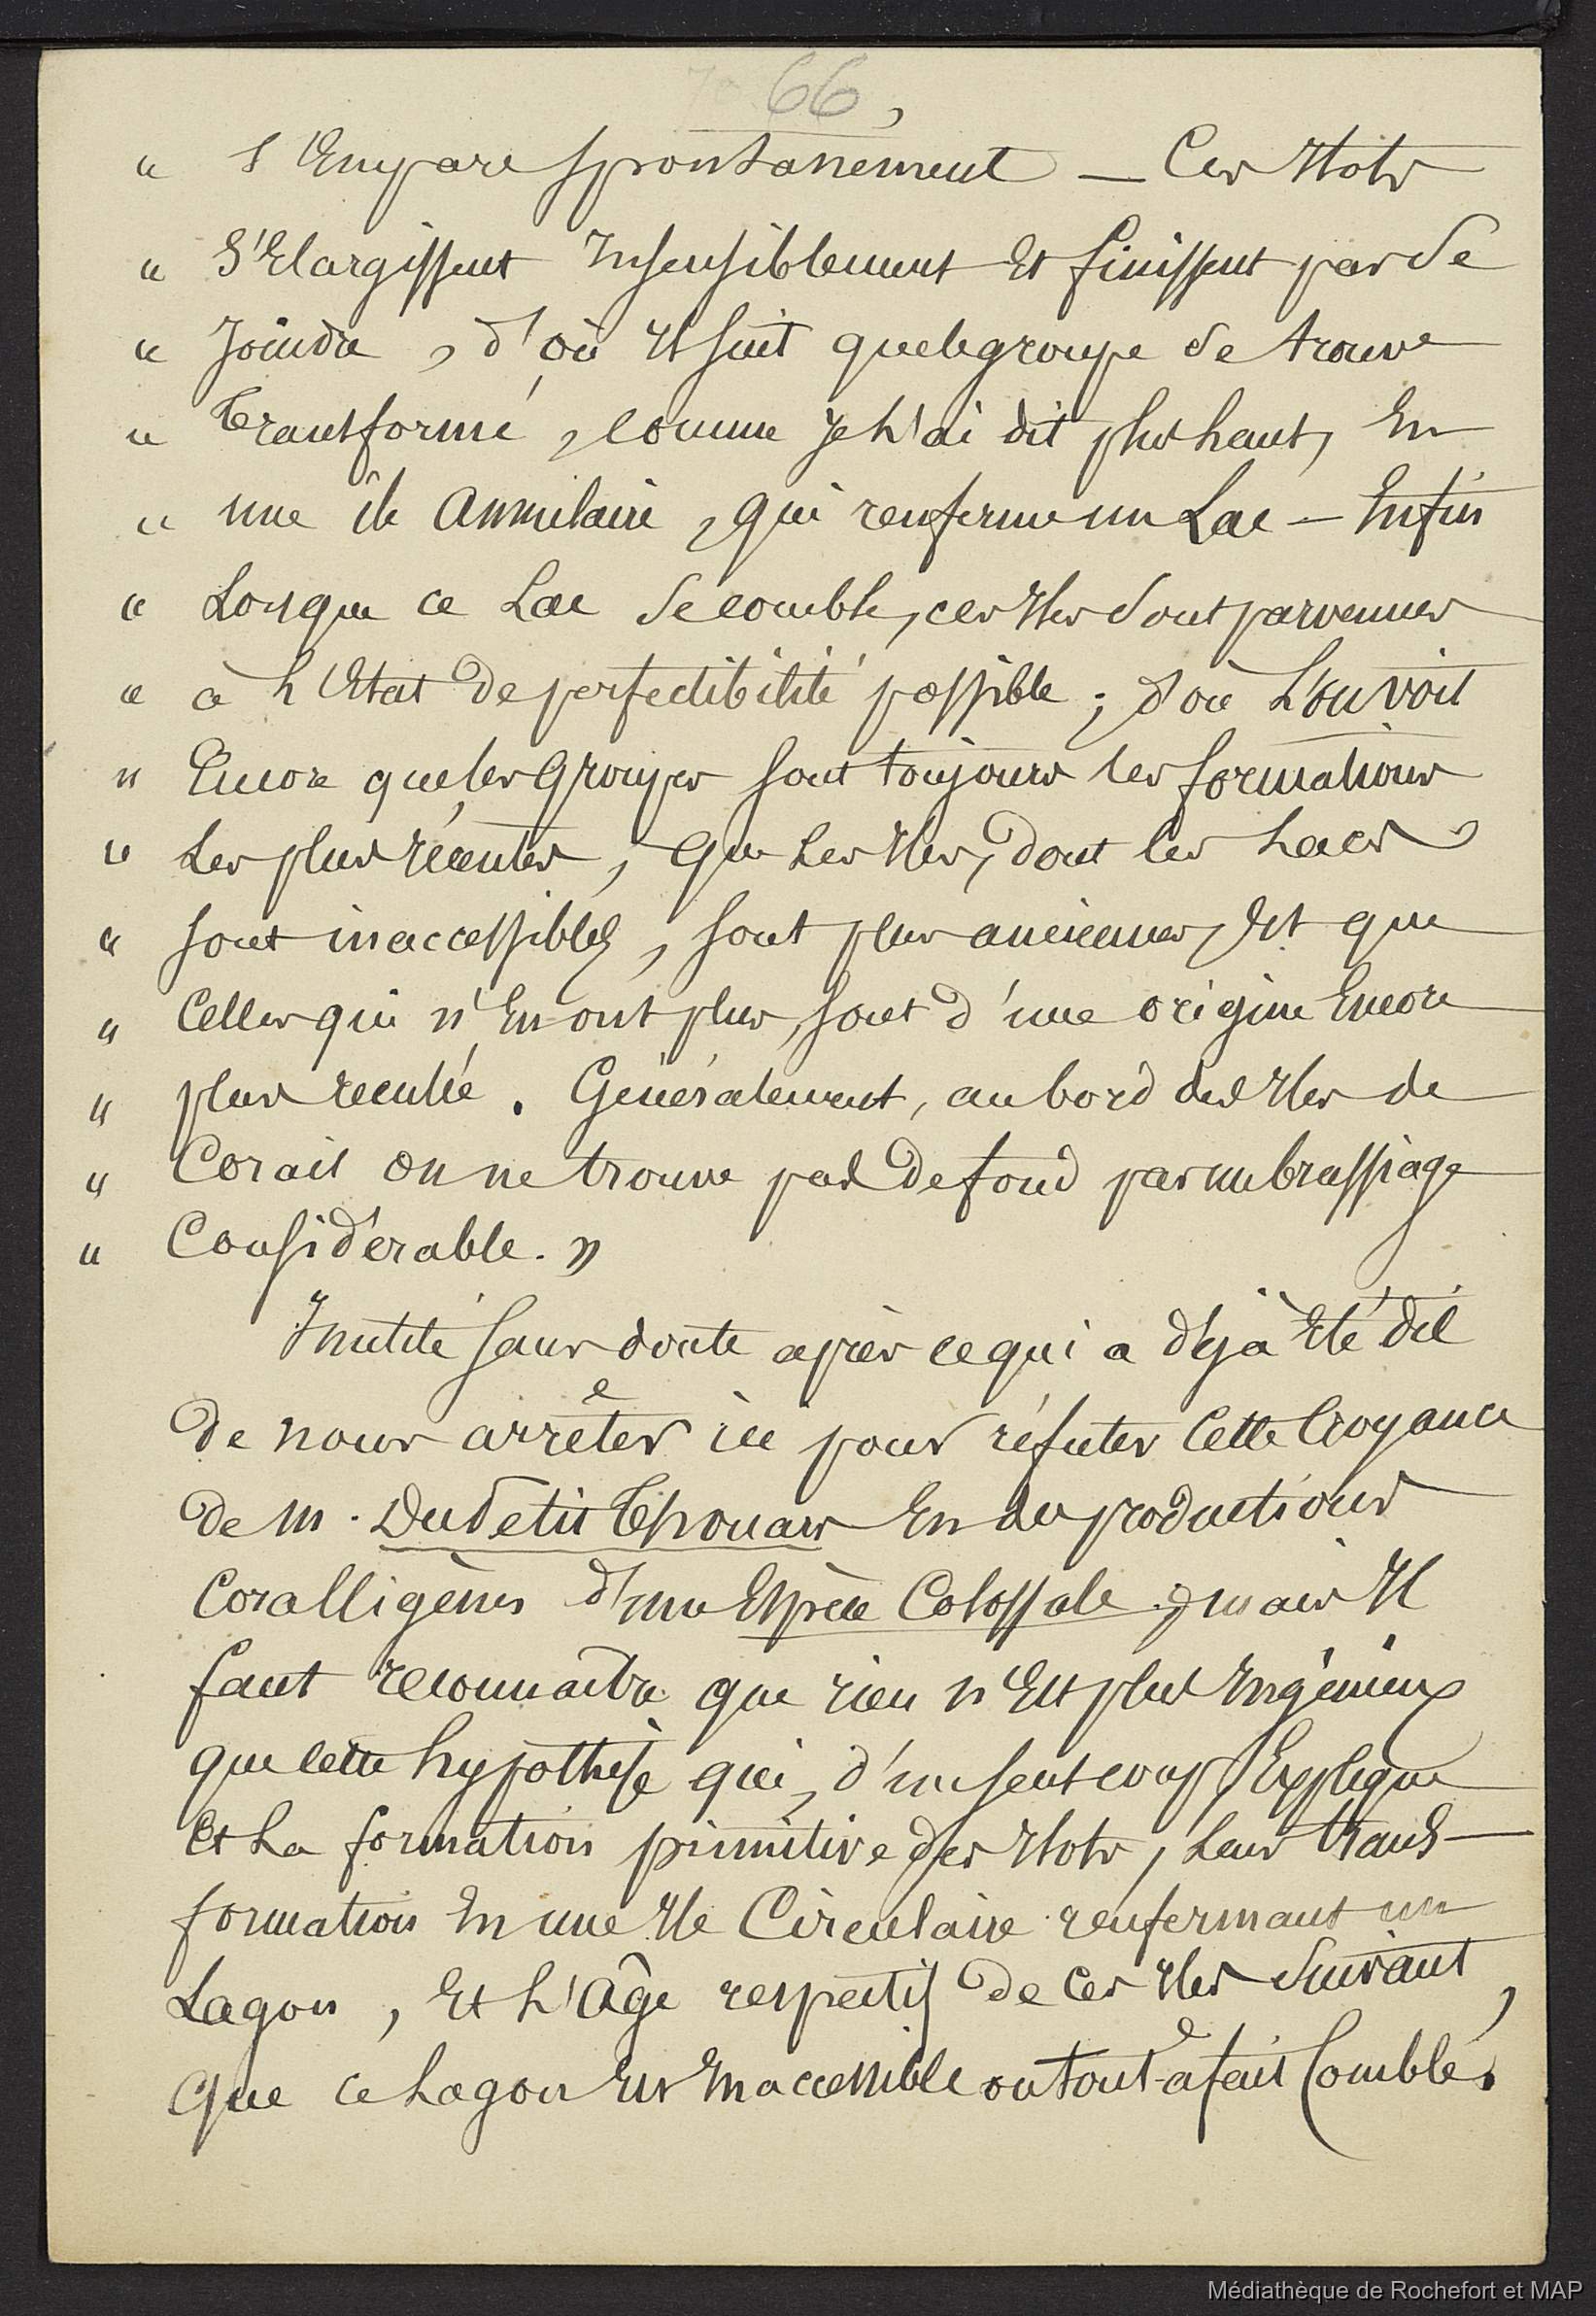 66,
" s'Empare spontanément — Ces Ilots
" S'Elargissent Insensiblement Et finissent par se
" Joindre, d'où Il suit que le groupe se trouve
" Transformé, comme je l'ai dit plus haut, En
" une île Annulaire, qui renferme un Lac — Enfin
" Lorsque ce Lac se comble, ces Iles sont parvenues
" à l'Etat de perfectibilité possible ; d'où L'on voit
" Encore que les Groupes sont toujours les formations
" Les plus récentes, que Les Iles, dont les Lacs
" sont inaccessibles, sont plus anciennes, Et que
" Celles qui n'En ont plus, sont d'une origine Encore
" plus reculée. Généralement, au bord des Iles de
" Corail on ne trouve pas de fond par un brassiage
" Considérable. "
Inutile sans doute après ce qui a déjà Eté dit
de nous arrêter ici pour réfuter Cette Croyance
de M. Du Petit Thouars En des productions
Coralligènes d'une Espèce Colossale ; mais Il
faut reconnaitre que rien n'Est plus Ingénieux
que cette hypothèse qui, d'un seul coup, Explique
Et La formation primitive des Ilots, Leur trans-
formation En une Ile Circulaire renfermant un
Lagon, Et L'Age respectif de Ces Iles suivant,
Que ce Lagon Est Inaccessible ou tout-à-fait Comblé.
Médiathèque de Rochefort et MAP